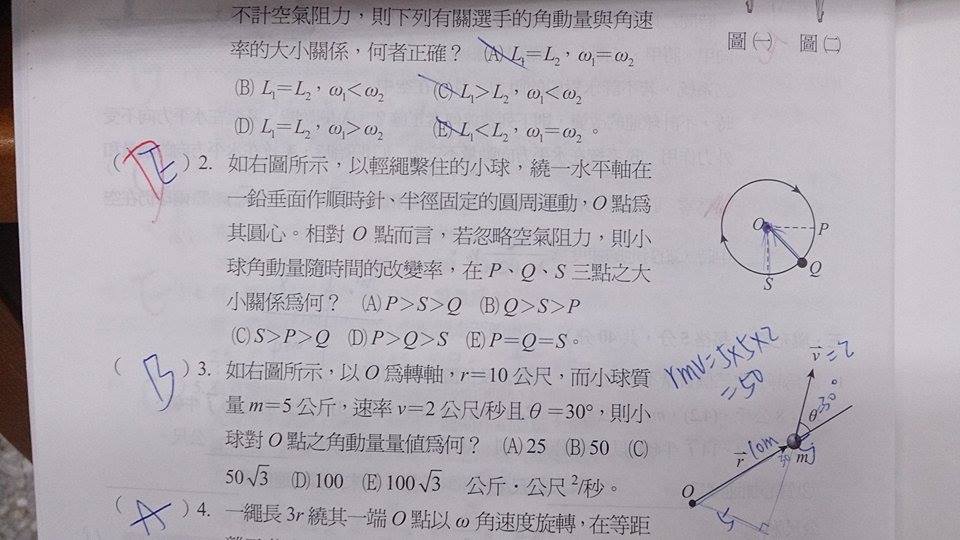 不計空氣阻力，則下列有關選手的角動量與角速
率的大小關係，何者正確？ (A) L₁=L₂，ω₁=ω₂
(B) L₁=L₂，ω₁<ω₂ (C) L₁>L₂，ω₁<ω₂
(D) L₁=L₂，ω₁>ω₂ (E) L₁<L₂，ω₁=ω₂。
圖(一) 圖(二)
( E ) 2. 如右圖所示，以輕繩繫住的小球，繞一水平軸在
一鉛垂面作順時針、半徑固定的圓周運動，O點為
其圓心。相對 O 點而言，若忽略空氣阻力，則小
球角動量隨時間的改變率，在 P、Q、S 三點之大
小關係為何？ (A) P>S>Q (B) Q>S>P
(C) S>P>Q (D) P>Q>S (E) P=Q=S。
O P
Q
S
( B ) 3. 如右圖所示，以 O 為轉軸，r=10 公尺，而小球質
量 m=5 公斤，速率 v=2 公尺/秒且 θ=30°，則小
球對 O 點之角動量量值為何？ (A) 25 (B) 50 (C)
50√3 (D) 100 (E) 100√3 公斤・公尺²/秒。
rmv=5×5×2
=50
v=2
θ 30°
r 10m m 5
O
5
( A ) 4. 一繩長 3r 繞其一端 O 點以 ω 角速度旋轉，在等距